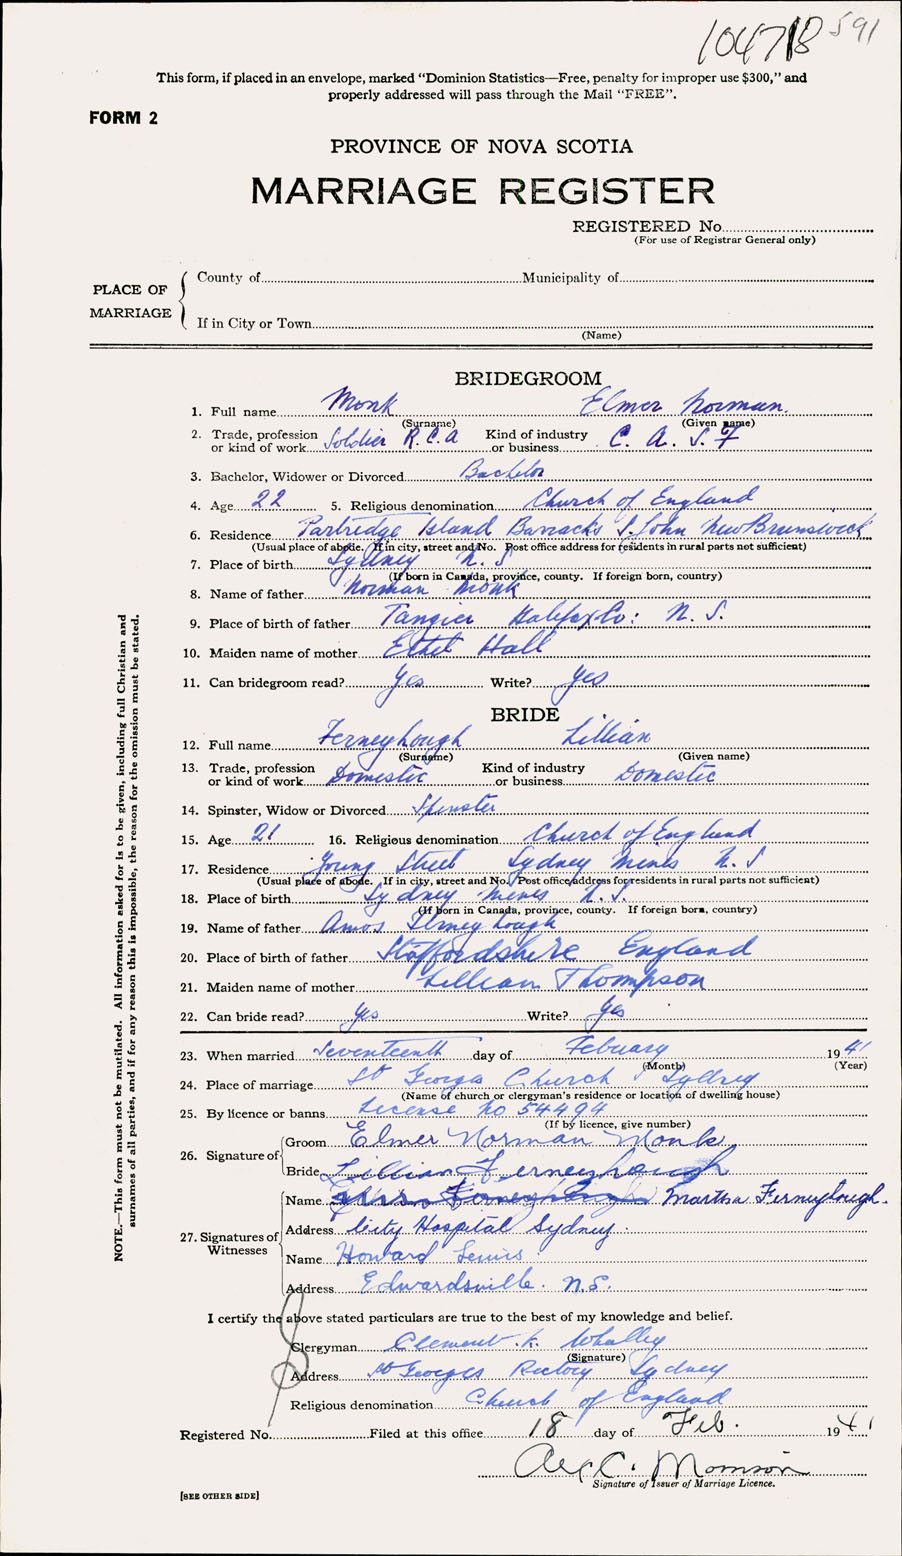 104718 591
This form, if placed in an envelope, marked "Dominion Statistics—Free, penalty for improper use $300," and
properly addressed will pass through the Mail "FREE".
FORM 2
PROVINCE OF NOVA SCOTIA
MARRIAGE REGISTER
REGISTERED No.
(For use of Registrar General only)
PLACE OF MARRIAGE
County of Municipality of
If in City or Town
(Name)
BRIDEGROOM
1. Full name Monk Elmer Norman.
(Surname) (Given name)
2. Trade, profession or kind of work Soldier R.C.A Kind of industry or business C. A. S. F
3. Bachelor, Widower or Divorced Bachelor
4. Age 22 5. Religious denomination Church of England
6. Residence Partridge Island Barracks S. John New Brunswick
(Usual place of abode. If in city, street and No. Post office address for residents in rural parts not sufficient)
7. Place of birth Sydney N. S
(If born in Canada, province, county. If foreign born, country)
8. Name of father Norman Monk
9. Place of birth of father Tangier Halifax Co: N. S.
10. Maiden name of mother Ethel Hall
11. Can bridegroom read? Yes Write? Yes
BRIDE
12. Full name Ferneyhough Lillian
(Surname) (Given name)
13. Trade, profession or kind of work Domestic Kind of industry or business Domestic
14. Spinster, Widow or Divorced Spinster
15. Age 21 16. Religious denomination Church of England
17. Residence Young Street Sydney Mines N. S
(Usual place of abode. If in city, street and No. Post office address for residents in rural parts not sufficient)
18. Place of birth Sydney Mines N. S.
(If born in Canada, province, county. If foreign born, country)
19. Name of father Amos Ferneyhough
20. Place of birth of father Staffordshire England
21. Maiden name of mother Lillian Thompson
22. Can bride read? Yes Write? Yes
23. When married Seventeenth day of Febuary 1941
(Month) (Year)
24. Place of marriage St Georges Church Sydney
(Name of church or clergyman's residence or location of dwelling house)
25. By licence or banns License No 54494
(If by licence, give number)
26. Signature of
Groom Elmer Norman Monk
Bride Lillian Ferneyhough
27. Signatures of Witnesses
Name Martha Ferneyhough.
Address City Hospital Sydney.
Name Howard Lewis
Address Edwardsville. N.S.
I certify the above stated particulars are true to the best of my knowledge and belief.
Clergyman Clement K. Whalley
(Signature)
Address St Georges Rectory Sydney
Religious denomination Church of England
Registered No. Filed at this office 18 day of Feb. 1941
Alex C. Morrison
Signature of Issuer of Marriage Licence.
[SEE OTHER SIDE]
NOTE.—This form must not be mutilated. All information asked for is to be given, including full Christian and
surnames of all parties, and if for any reason this is impossible, the reason for the omission must be stated.